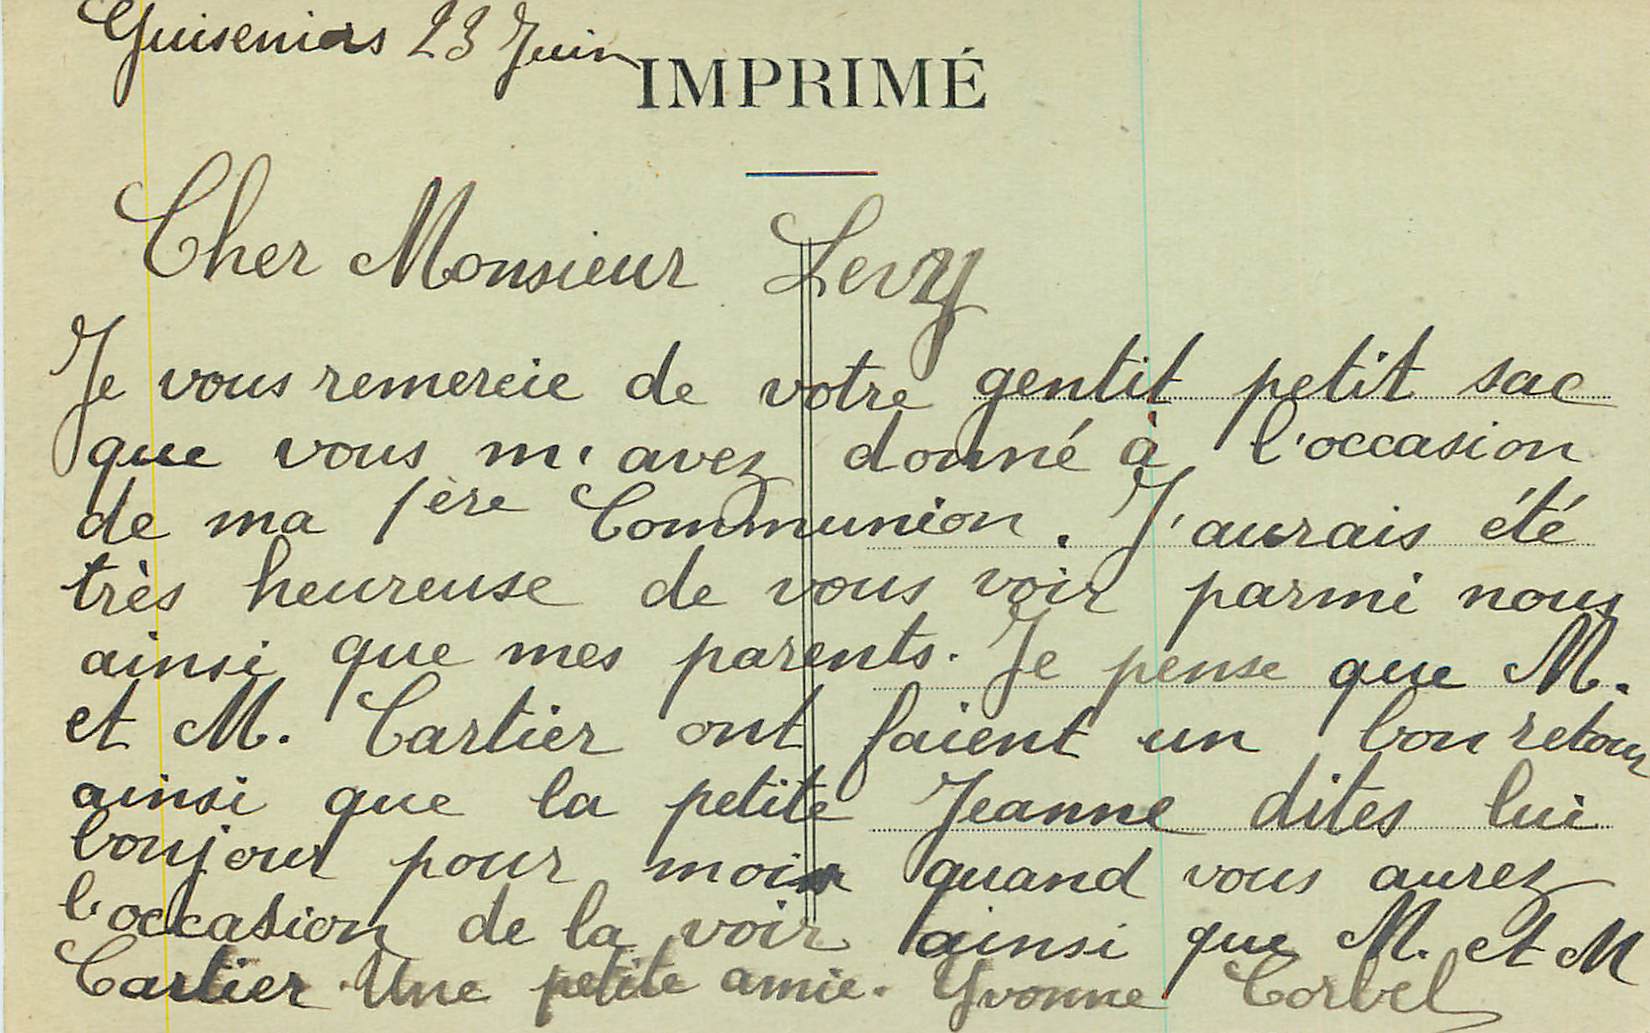 Guiseniers 23 Juin
IMPRIMÉ
Cher Monsieur Levy
Je vous remercie de votre gentit petit sac
que vous m'avez donné à l'occasion
de ma 1ère Communion. J'aurais été
très heureuse de vous voir parmi nous
ainsi que mes parents. Je pense que M.
et M. Cartier ont faient un bon retour
ainsi que la petite Jeanne dites lui
bonjour pour moi quand vous aurez
l'occasion de la voir ainsi que M. et M
Cartier. Une petite amie. Yvonne Corbel